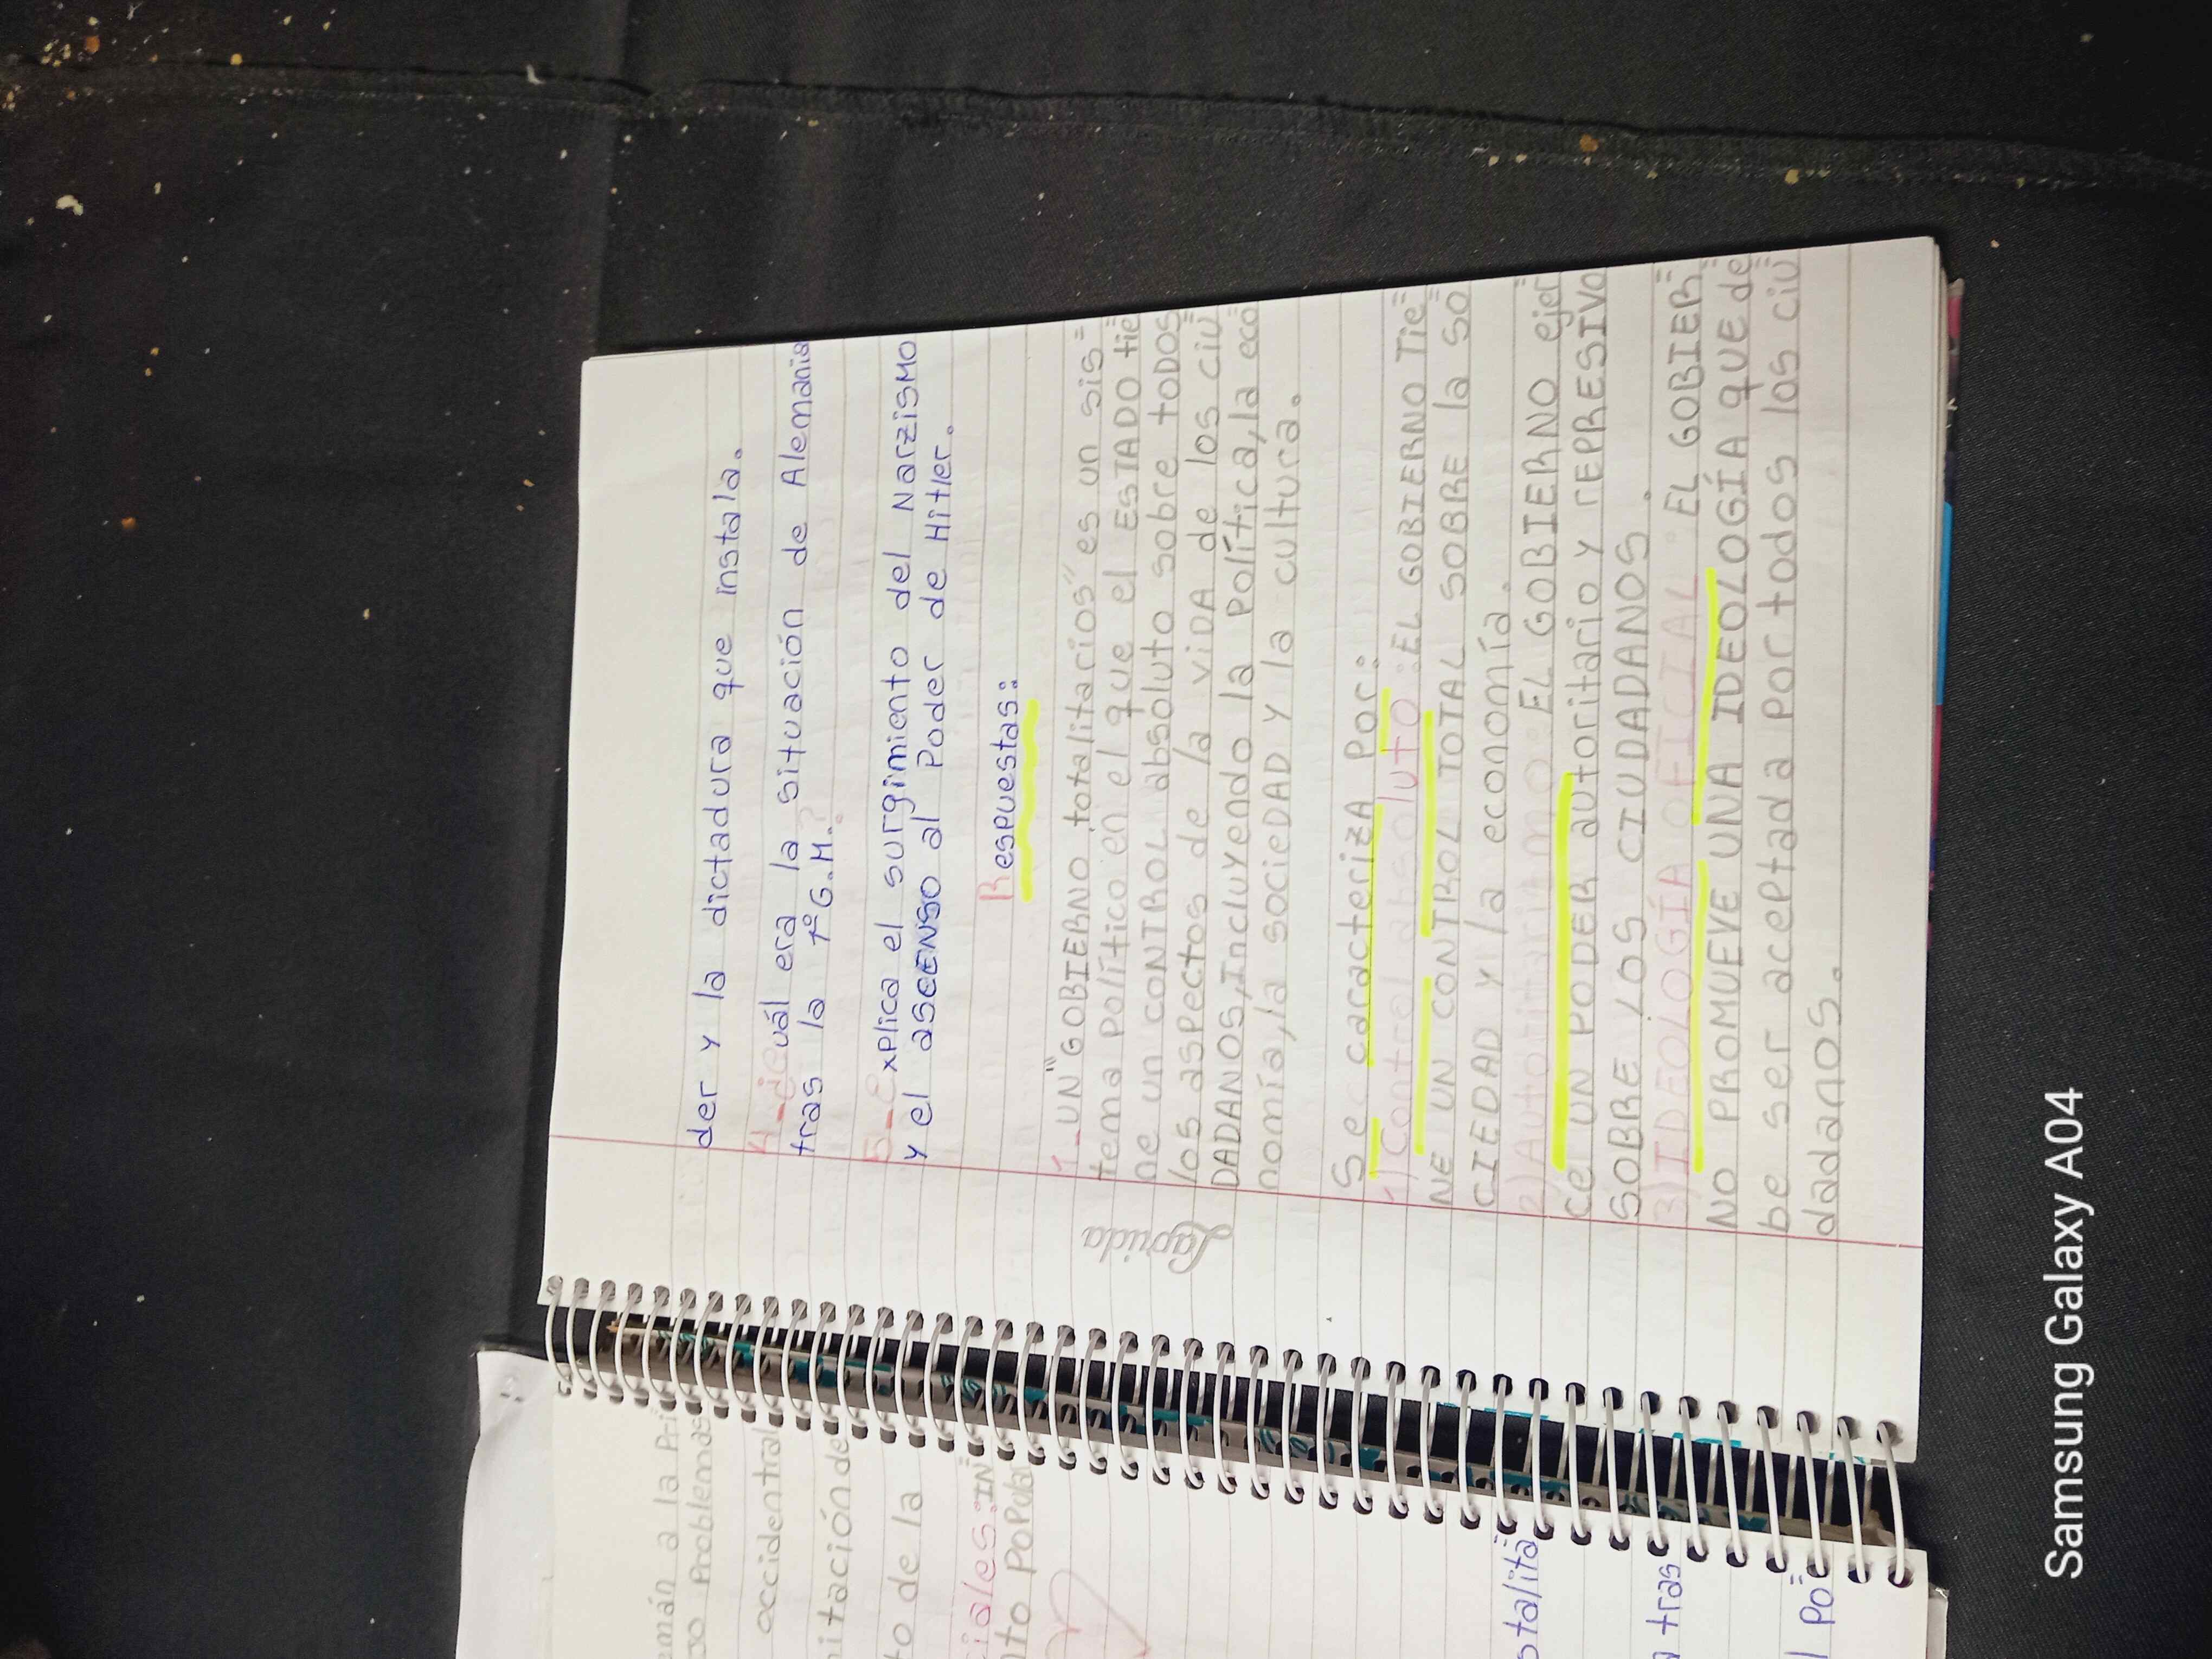 emán a la Pri
so Problemas
occidentral
itación de
to de la
ciales: IN
nto Popular
otalita
tras
l Po
der y la dictadura que instala.
4-¿Cuál era la situación de Alemania
tras la 1º G.M.?
5-Explica el surgimiento del Narzismo
y el ascENSO al Poder de Hitler.
Respuestas:
1-UN "GOBIERNO totalitarios" es un sis=
tema Político en el que el ESTADO tie
ne un CONTROL absoluto sobre toDOS
los aspectos de la viDA de los ciu
DADANOS, Incluyendo la Política, la eco
nomía, la socieDAD y la cultura.
Se caracteriza Por:
1) Control absoluto: EL GOBIERNO Tie=
NE UN CONTROL TOTAL SOBRE la SO
CIEDAD y la economía.
2) Autoritarimo: EL GOBIERNO ejer
ce UN PODER autoritario y rEPRESIVO
SOBRE LOS CIUDADANOS.
3) IDEOLOGÍA OFICIAL: EL GOBIER=
NO PROMUEVE UNA IDEOLOGÍA qUE de=
be ser aceptada por todos los ciu
dadanos.
Laprida
Samsung Galaxy A04